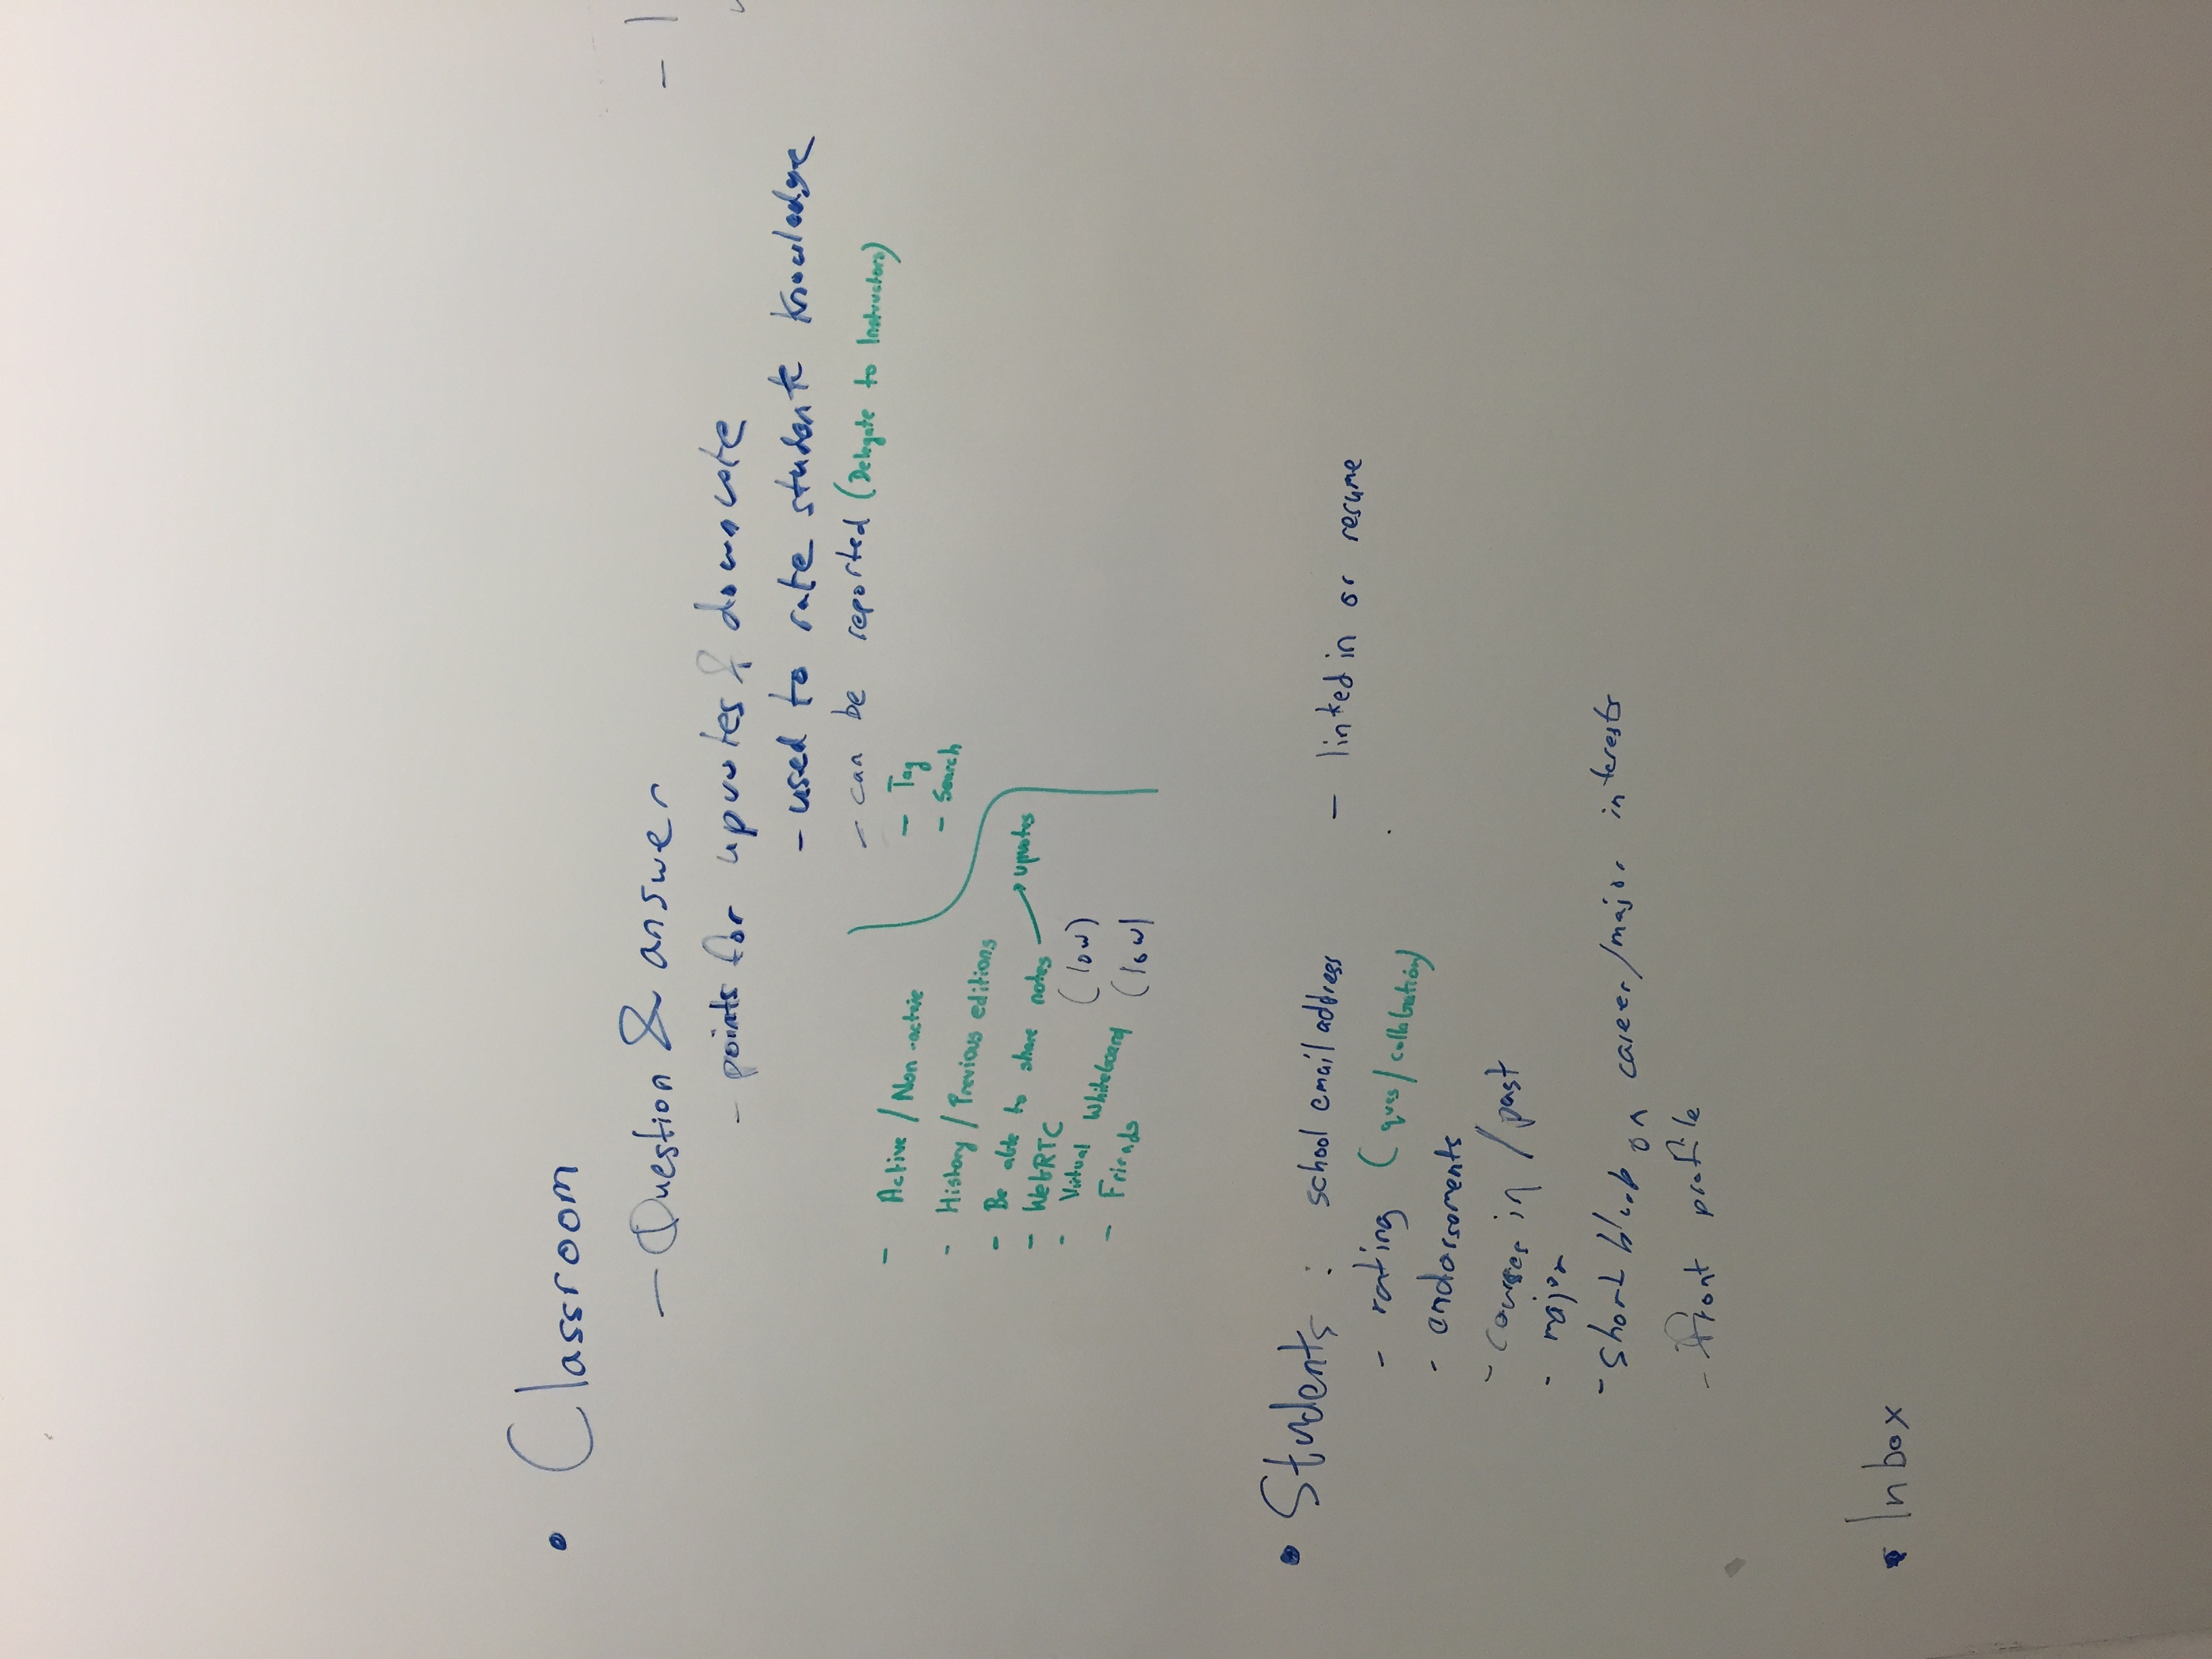 • Classroom
- Question & answer
- points for upvotes & downvote
- used to rate students knowledge
- can be reported (Delegate to Instructors)
- Tag
- Search
- Active / Non-active
- History / Previous editions
- Be able to share notes → upvotes
- WebRTC
- Virtual Whiteboard (low)
- Friends (low)
• Students : school email address
- linked in or resume
- rating (ques/collabation)
- endorsements
- courses in / past
- major
- short blurb on career/major interests
- front profile
• Inbox